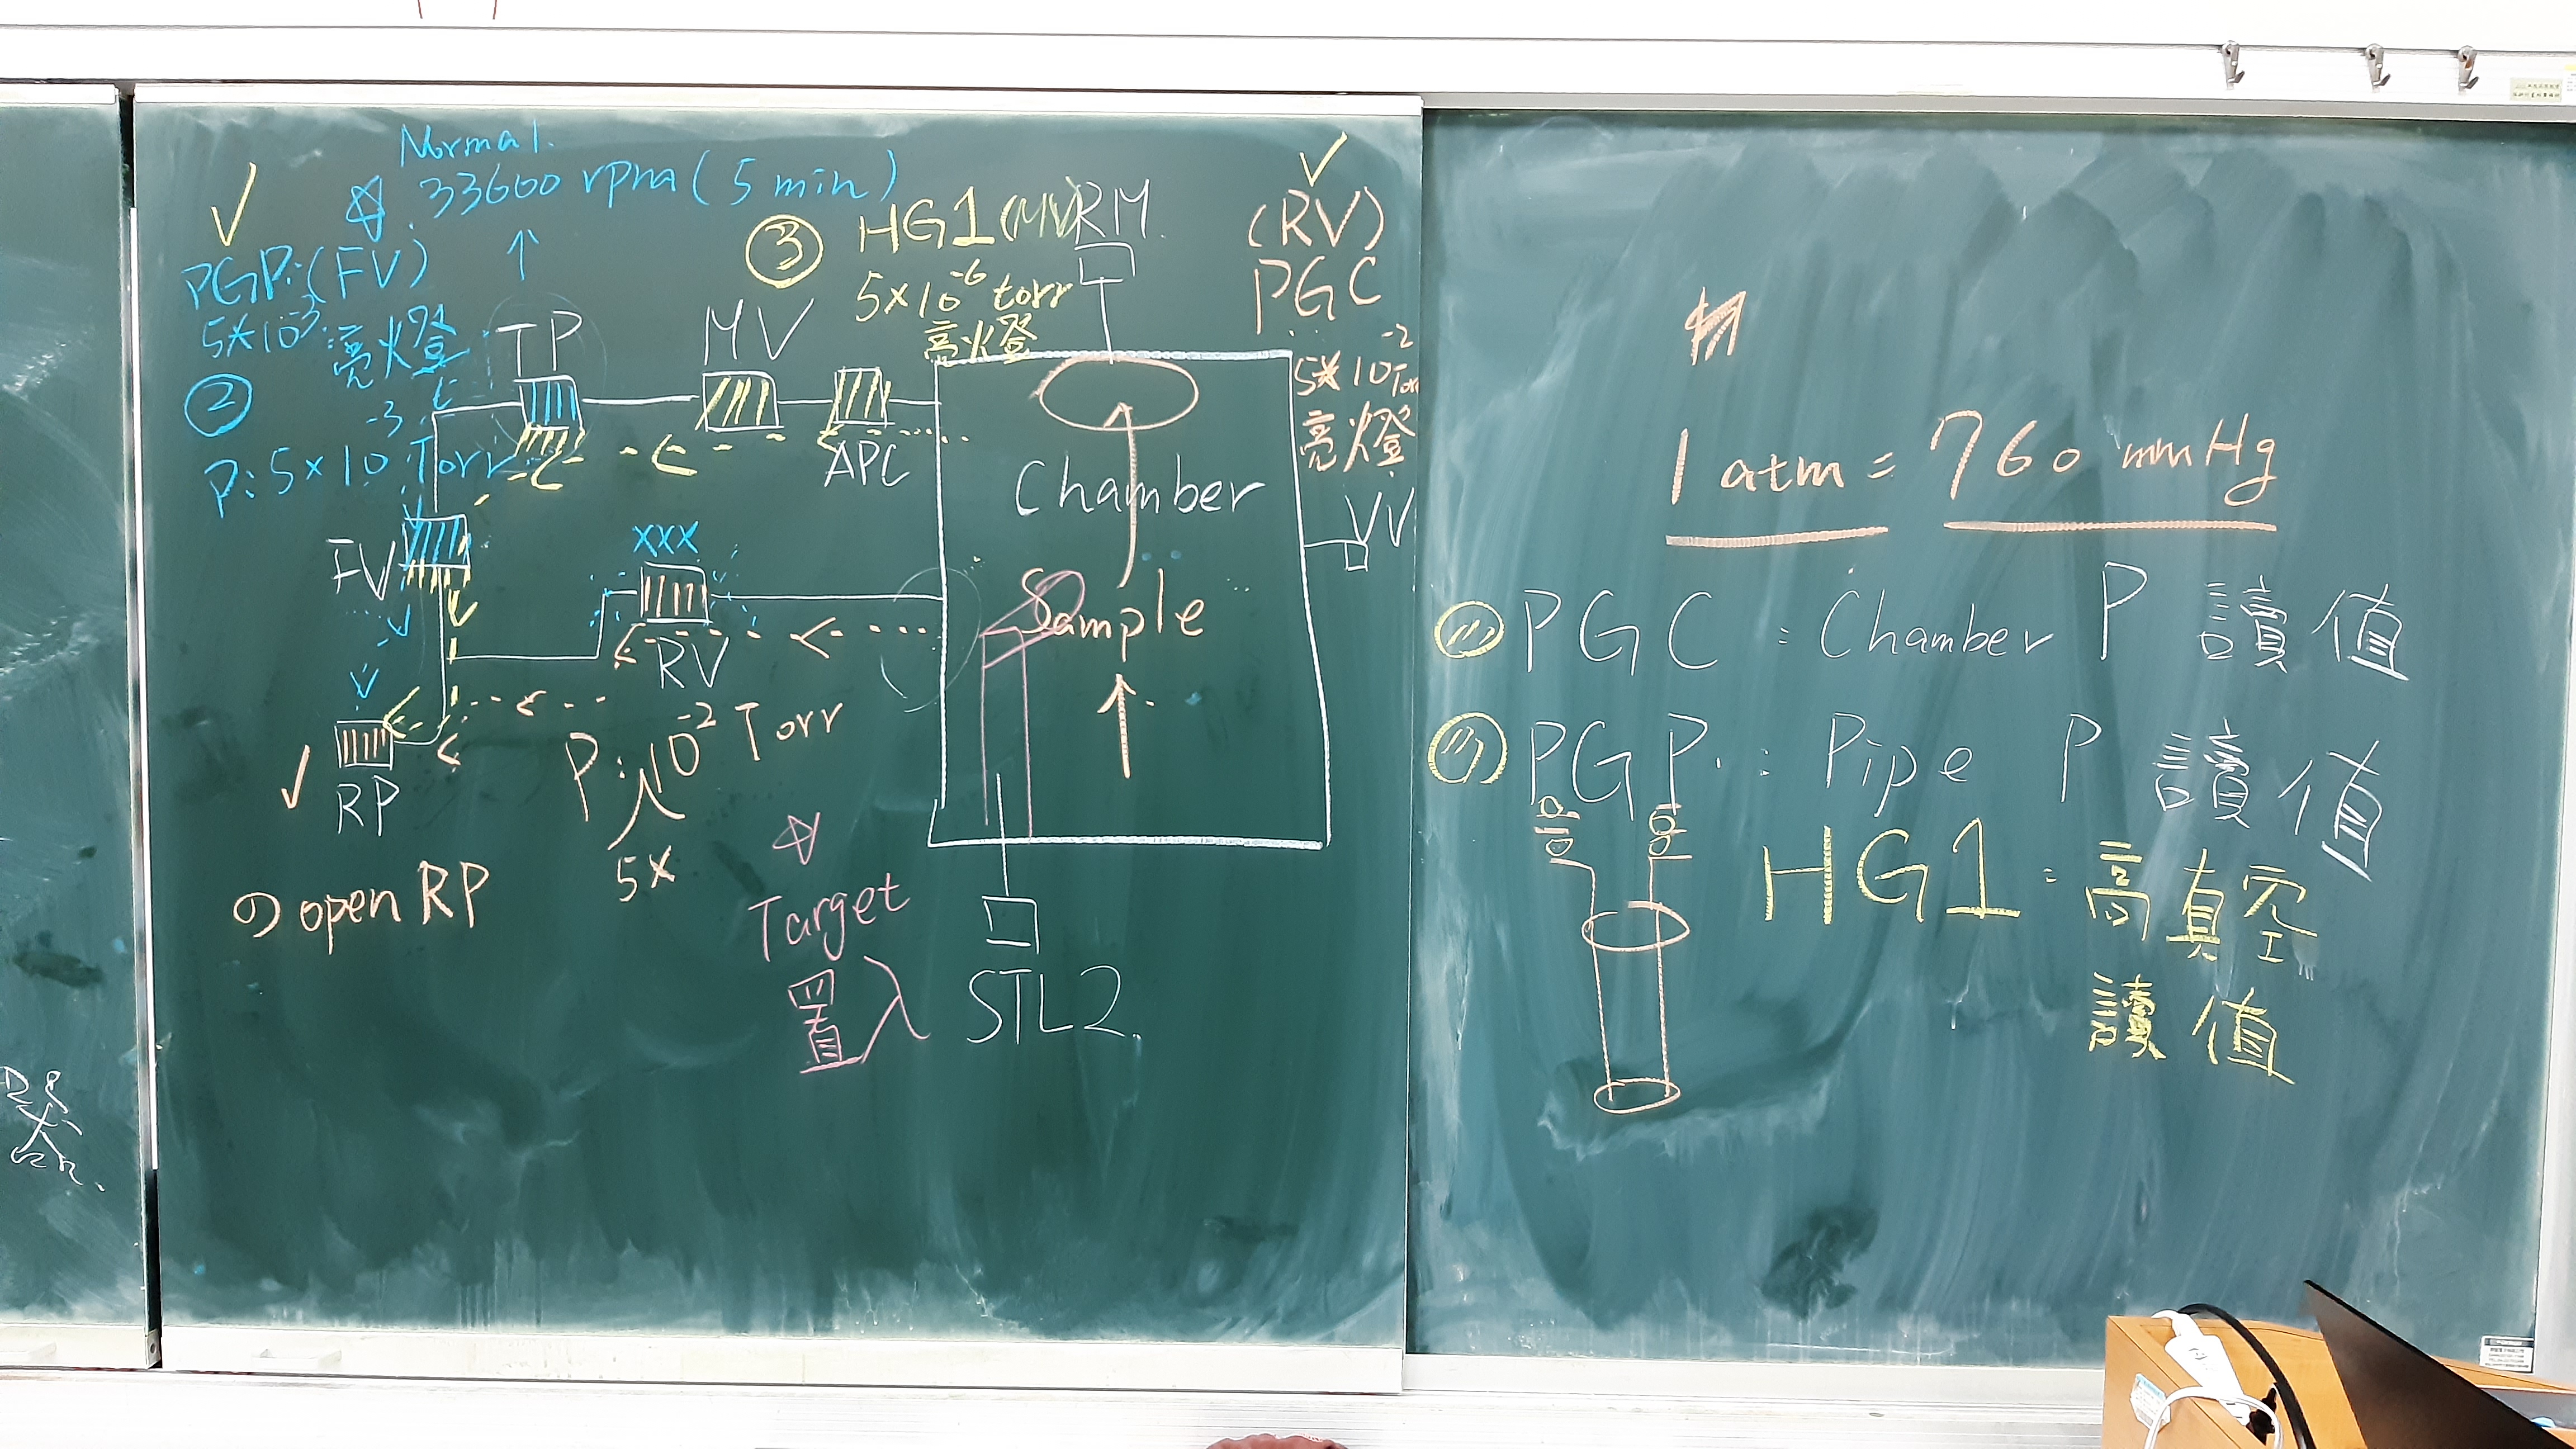 Normal.
33600 rpm (5 min)
PGP:(FV)
5*10⁻³:亮燈
②
P:5×10⁻³ Torr
TP
MV
APC
③ HG1(MV)
5×10⁻⁶ torr
亮燈
RM
(RV)
PGC
5*10⁻² Torr
亮燈
VV
Chamber
Sample
FV
xxx
RV
RP
P:10⁻² Torr
5×
open RP
Target
置入
STL2.
1 atm = 760 mmHg
PGC : Chamber P 讀值
PGP. : Pipe P 讀值
HG1 : 高真空
讀值